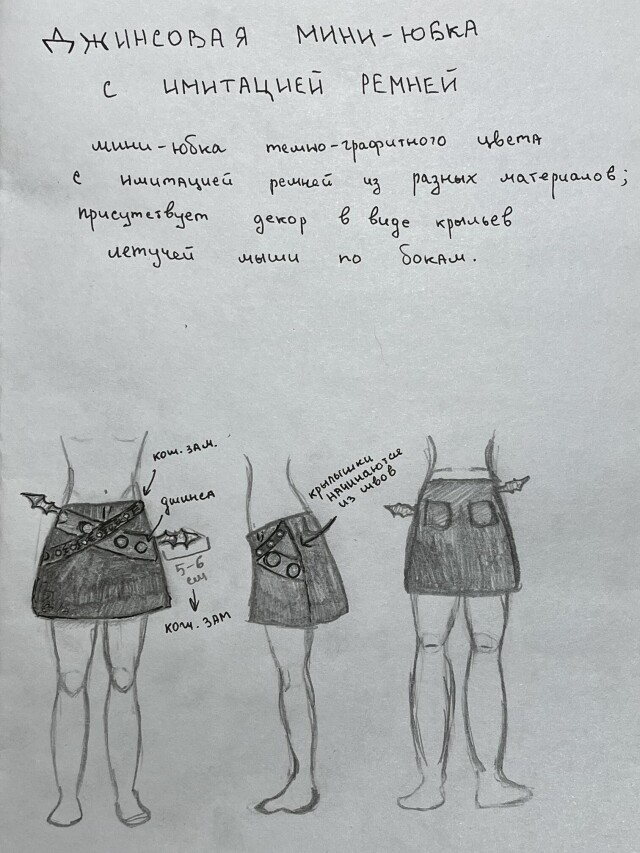 ДЖИНСОВАЯ МИНИ-ЮБКА
С ИМИТАЦИЕЙ РЕМНЕЙ
мини-юбка темно-графитного цвета
с имитацией ремней из разных материалов;
присутствует декор в виде крыльев
летучей мыши по бокам.
кож. зам.
джинса
5-6
см
кож. зам
крылышки
начинаются
из швов